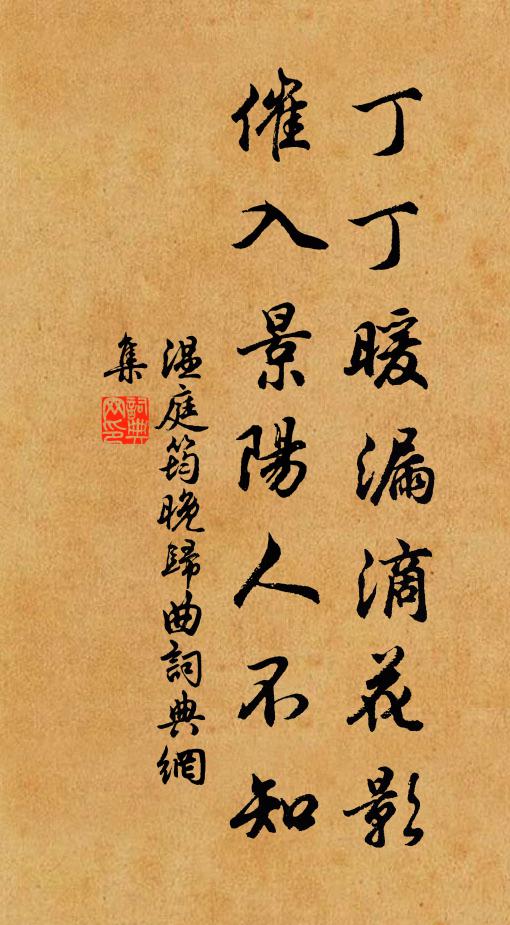 丁丁暖漏滴花影
催入景陽人不知
温庭筠晚歸曲詞典網
集
詞典
網印